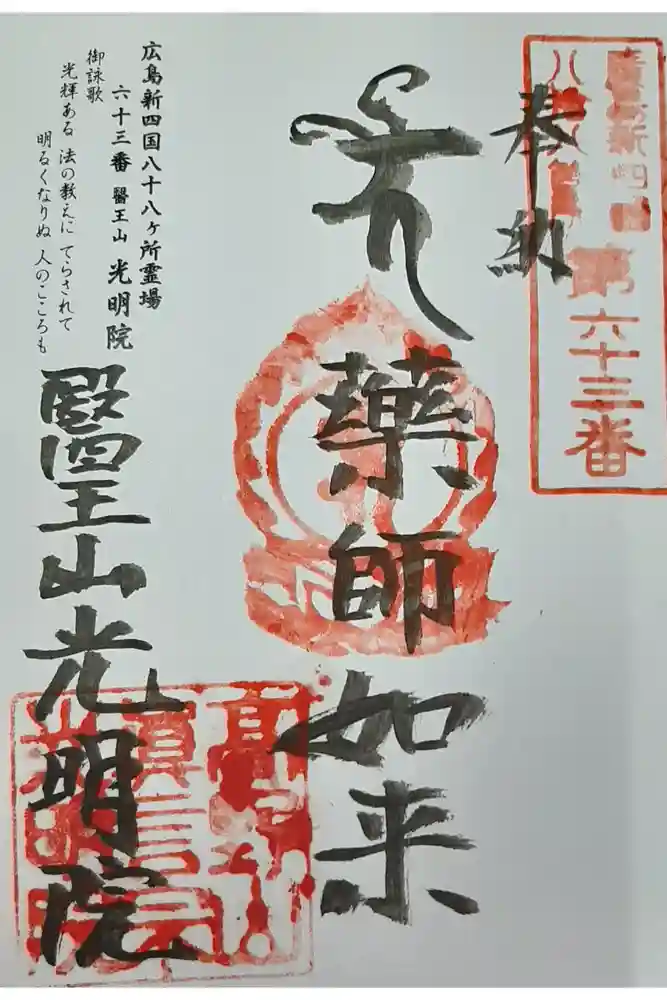 廣島新四國
八十八ヶ所
第六十三番
奉納
薬師如来
広島新四国八十八ヶ所霊場
六十三番 醫王山 光明院
御詠歌
光輝ある 法の教えに てらされて
明るくなりぬ 人のこころも
醫王山光明院
高野山
真言宗
光明院